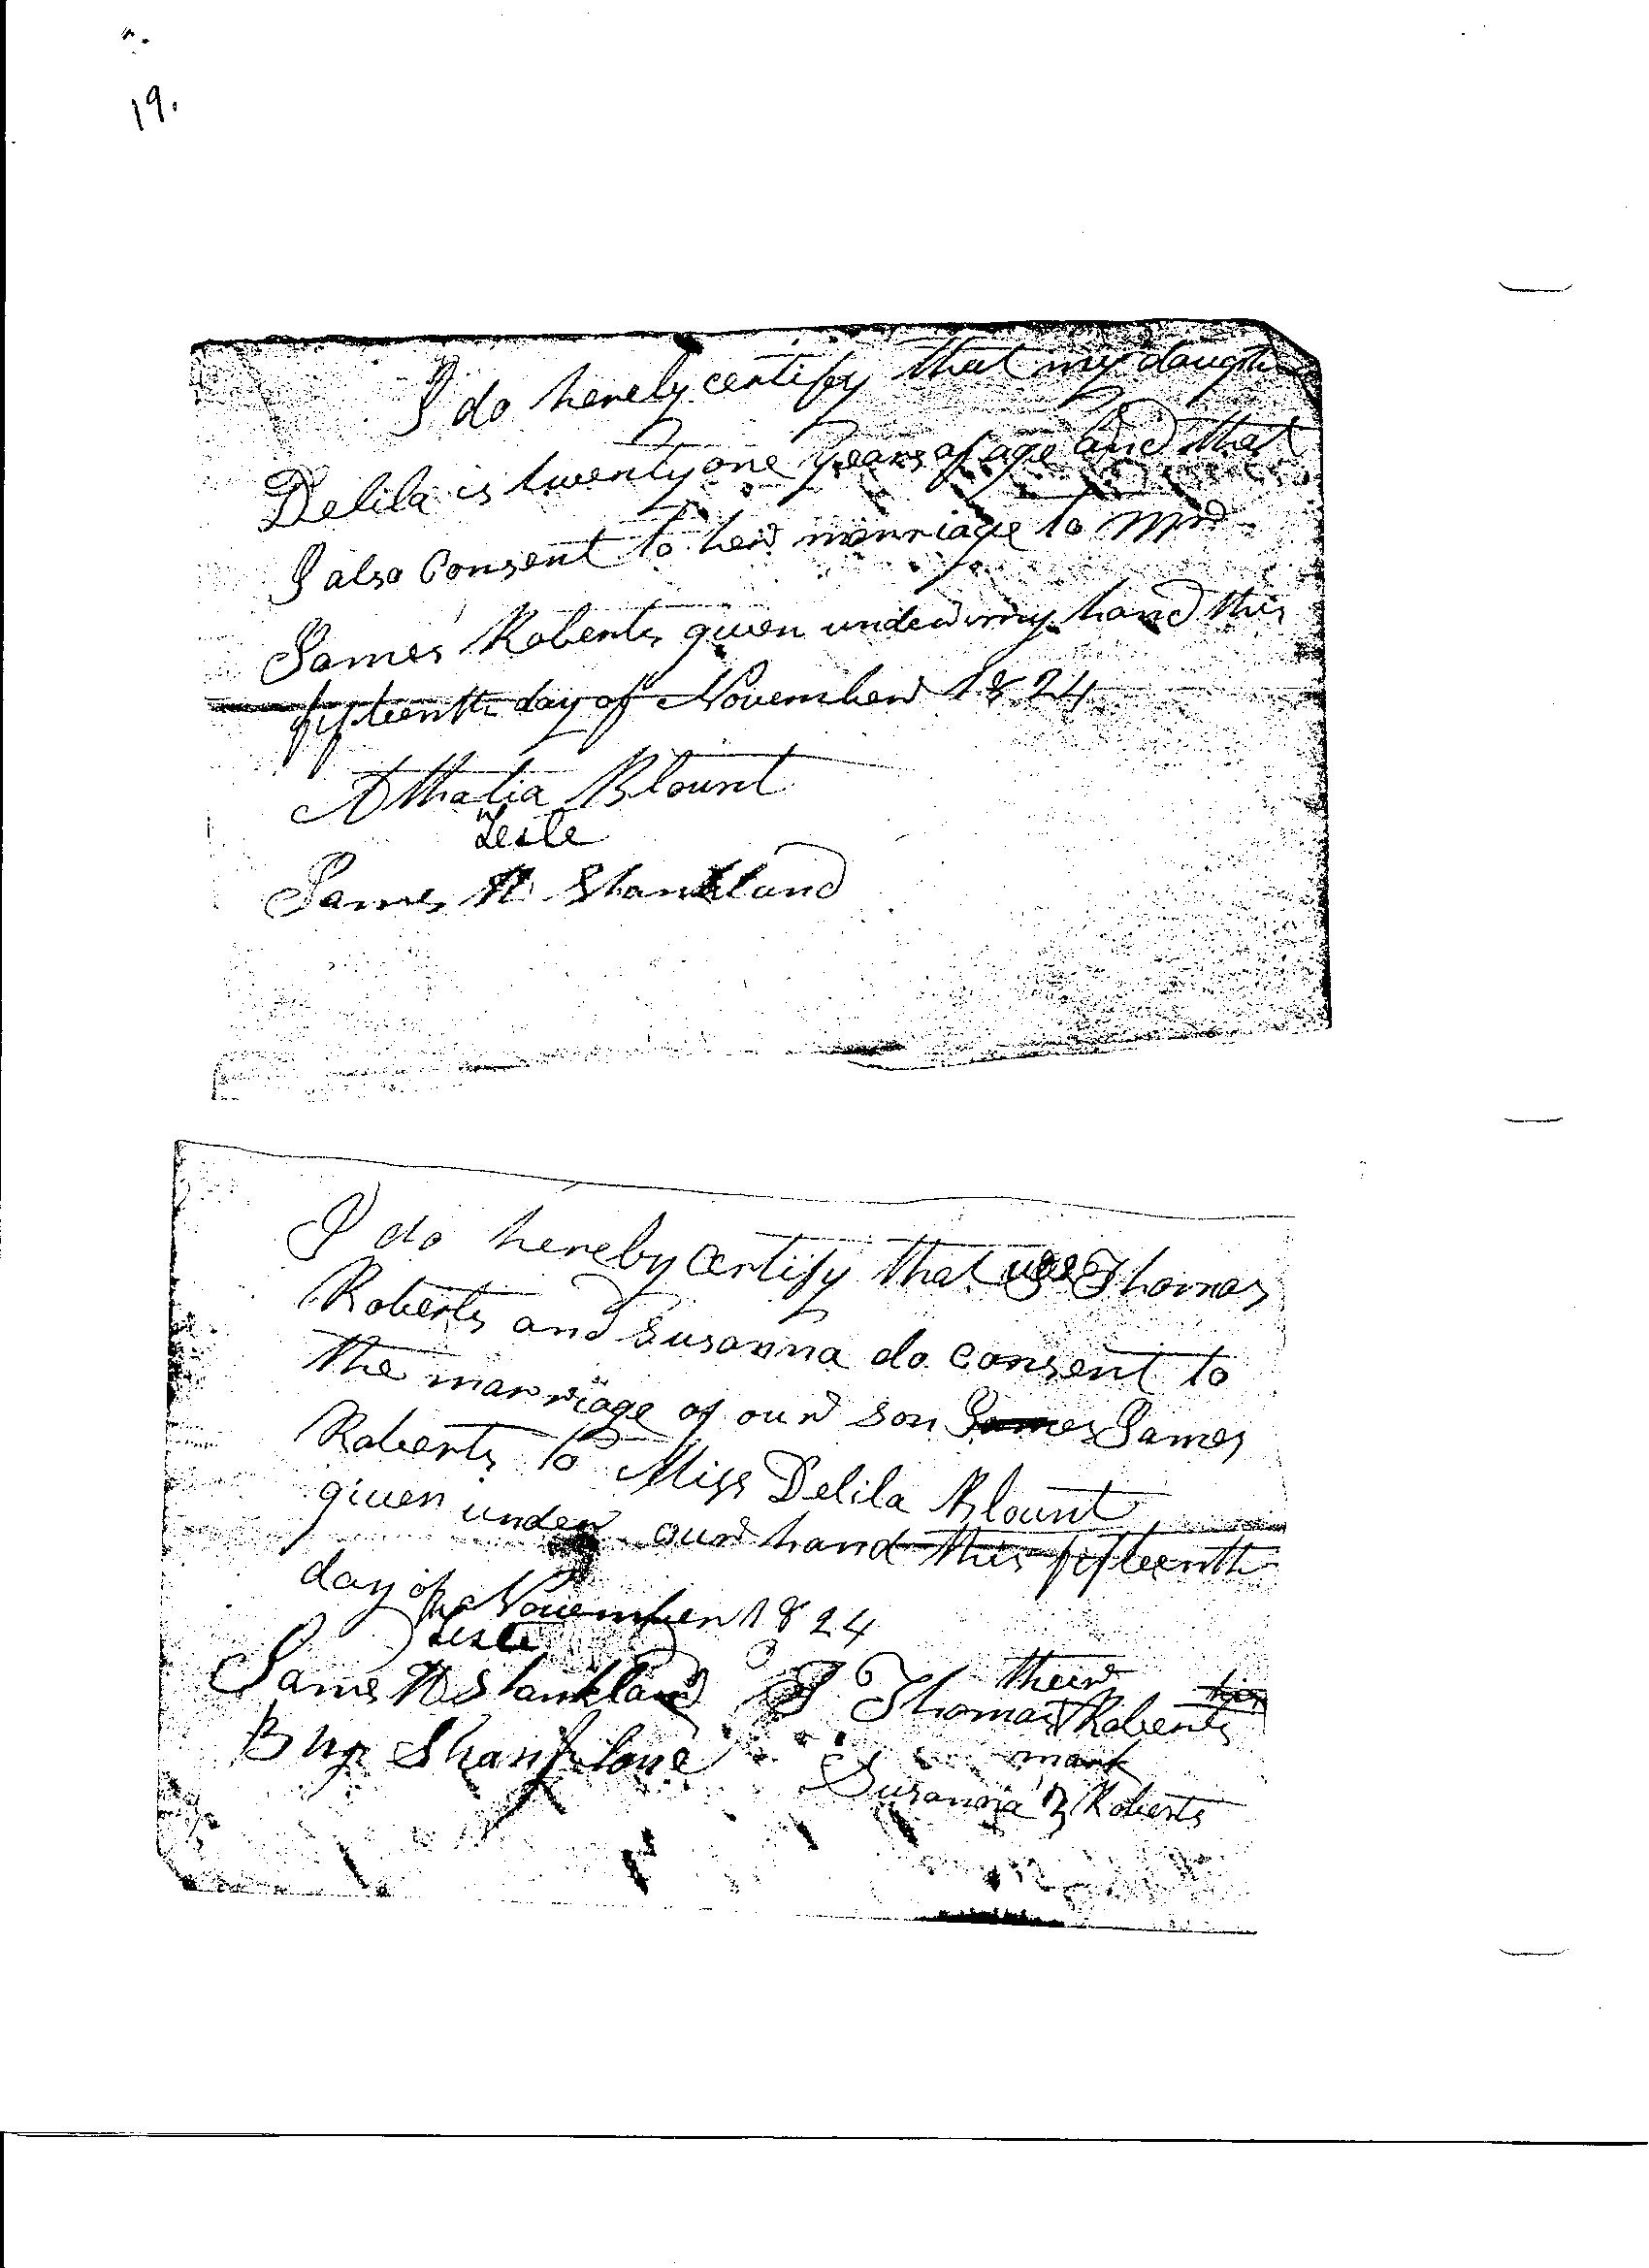 19.
I do hereby certify that my daughter
Delila is twenty one years of age and that
I also Consent to her marriage to Mr
James Roberts given under my hand this
fifteenth day of November 1824
Athalia Blount
Teste
James N Shankland
I do hereby Certify that we Thomas
Roberts and Susanna do Consent to
the marriage of our son James James
Roberts to Miss Delila Blount
given under our hand this fifteenth
day of November 1824
Teste
James N Shankland
their
Thomas Roberts
mark
Susanna Roberts